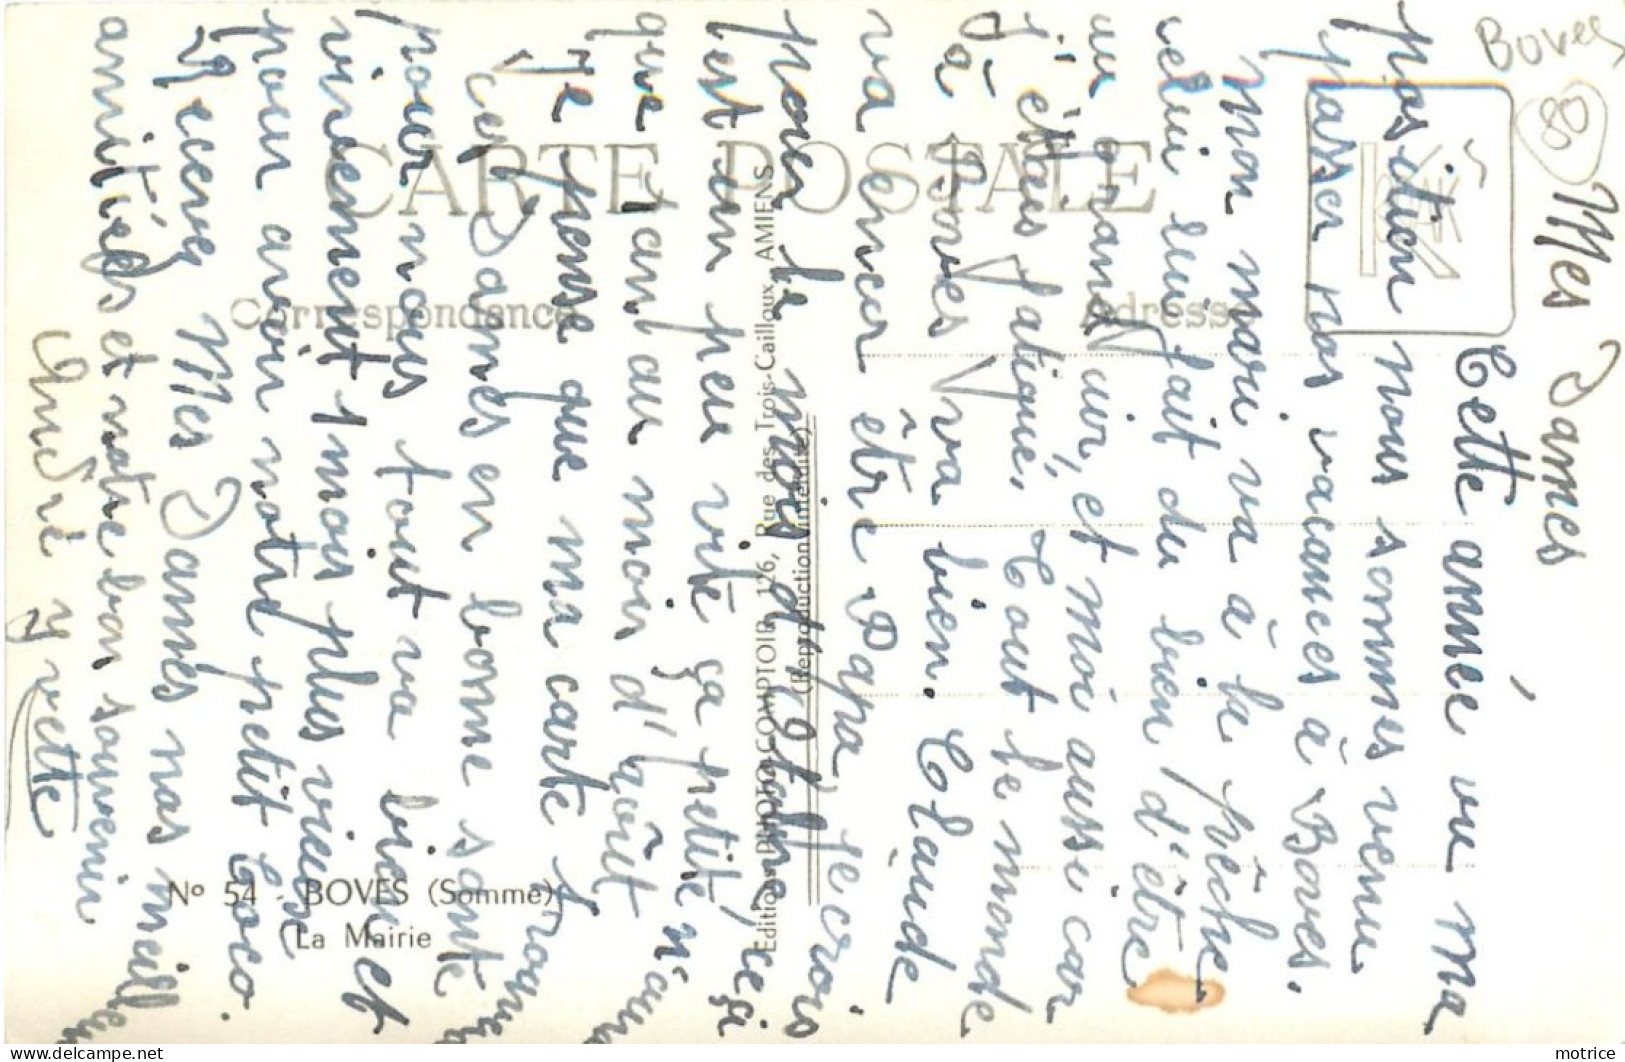 Boves
80
Mes Dames
Cette année vu ma
position nous sommes venu
passer nos vacances à Boves.
Mon mari va à la pêche
celui lui fait du bien d'être
au grand air, et moi aussi car
j'étais fatigué, Tout le monde
à Boves va bien. Claude
va encor être Papa, je crois
pour le mois d'octobre, ceçi
est un peu vite ça petite n'aura
que 1 an au mois d'août
Je pense que ma carte trouvera
ces Dames en bonne santé
pour nous tout va bien et
vivement 1 mois plus vieux
pour avoir notre petit Coco.
Recevez Mes Dames nos meilleurs
amitiés et notre bon souvenir
André Yvette
CARTE POSTALE
Correspondance
Adresse
Editions PHOTO-COMPTOIR, 126, Rue des Trois-Cailloux, AMIENS
(Reproduction interdite)
Nº 54 - BOVES (Somme)
La Mairie
motrice